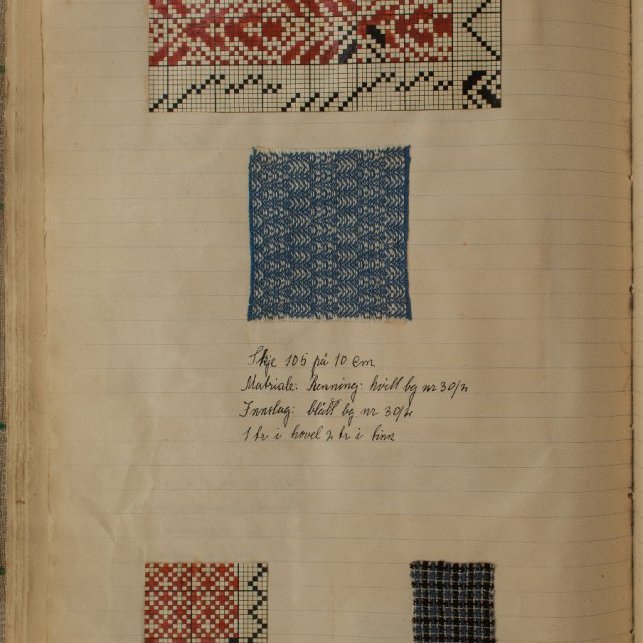 Skje 105 på 10 cm
Matriale: Renning: hvitt bg nr 30/2
Innslag: blått bg nr 30/2
1 tr i hovel 2 tr i tinn